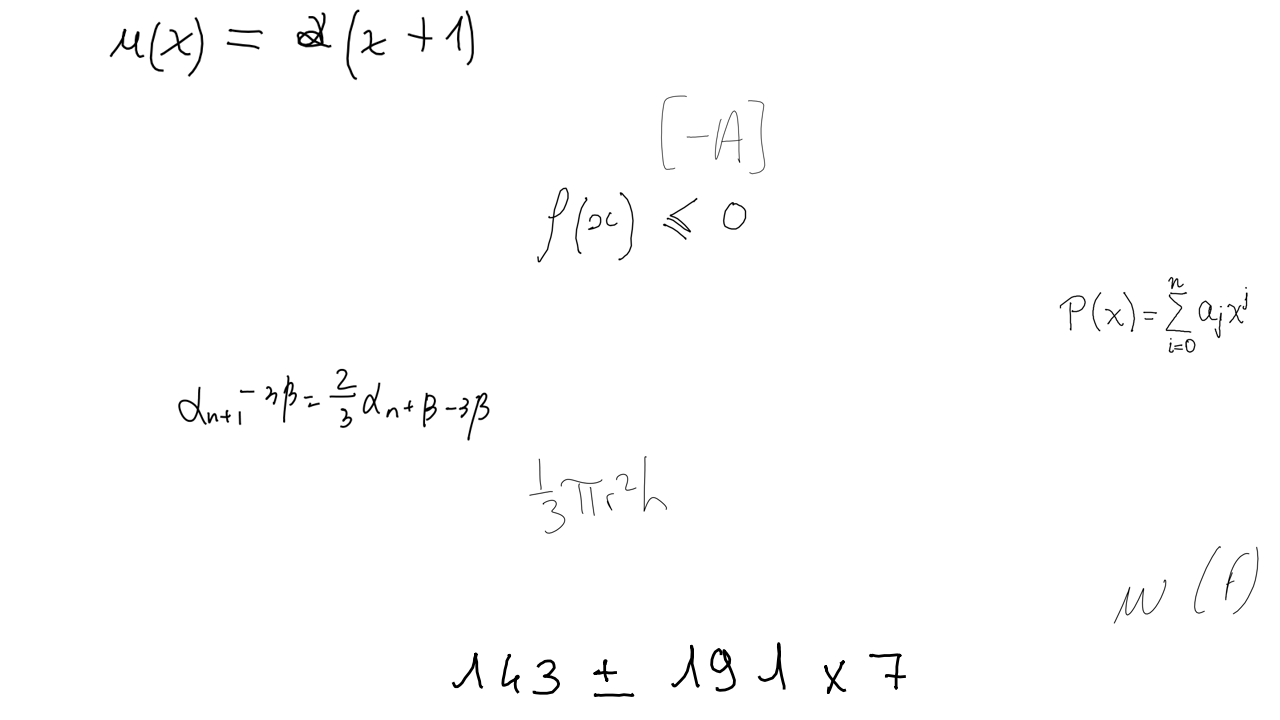 μ(x) = 2(x + 1)
[-A]
f(x) ⩽ 0
P(x) = \sum_{i=0}^{n} a_j x^j
α_{n+1} - 3β = \frac{2}{3} α_n + β - 3β
\frac{1}{3} π r^2 h
w (f)
143 ± 191 x 7